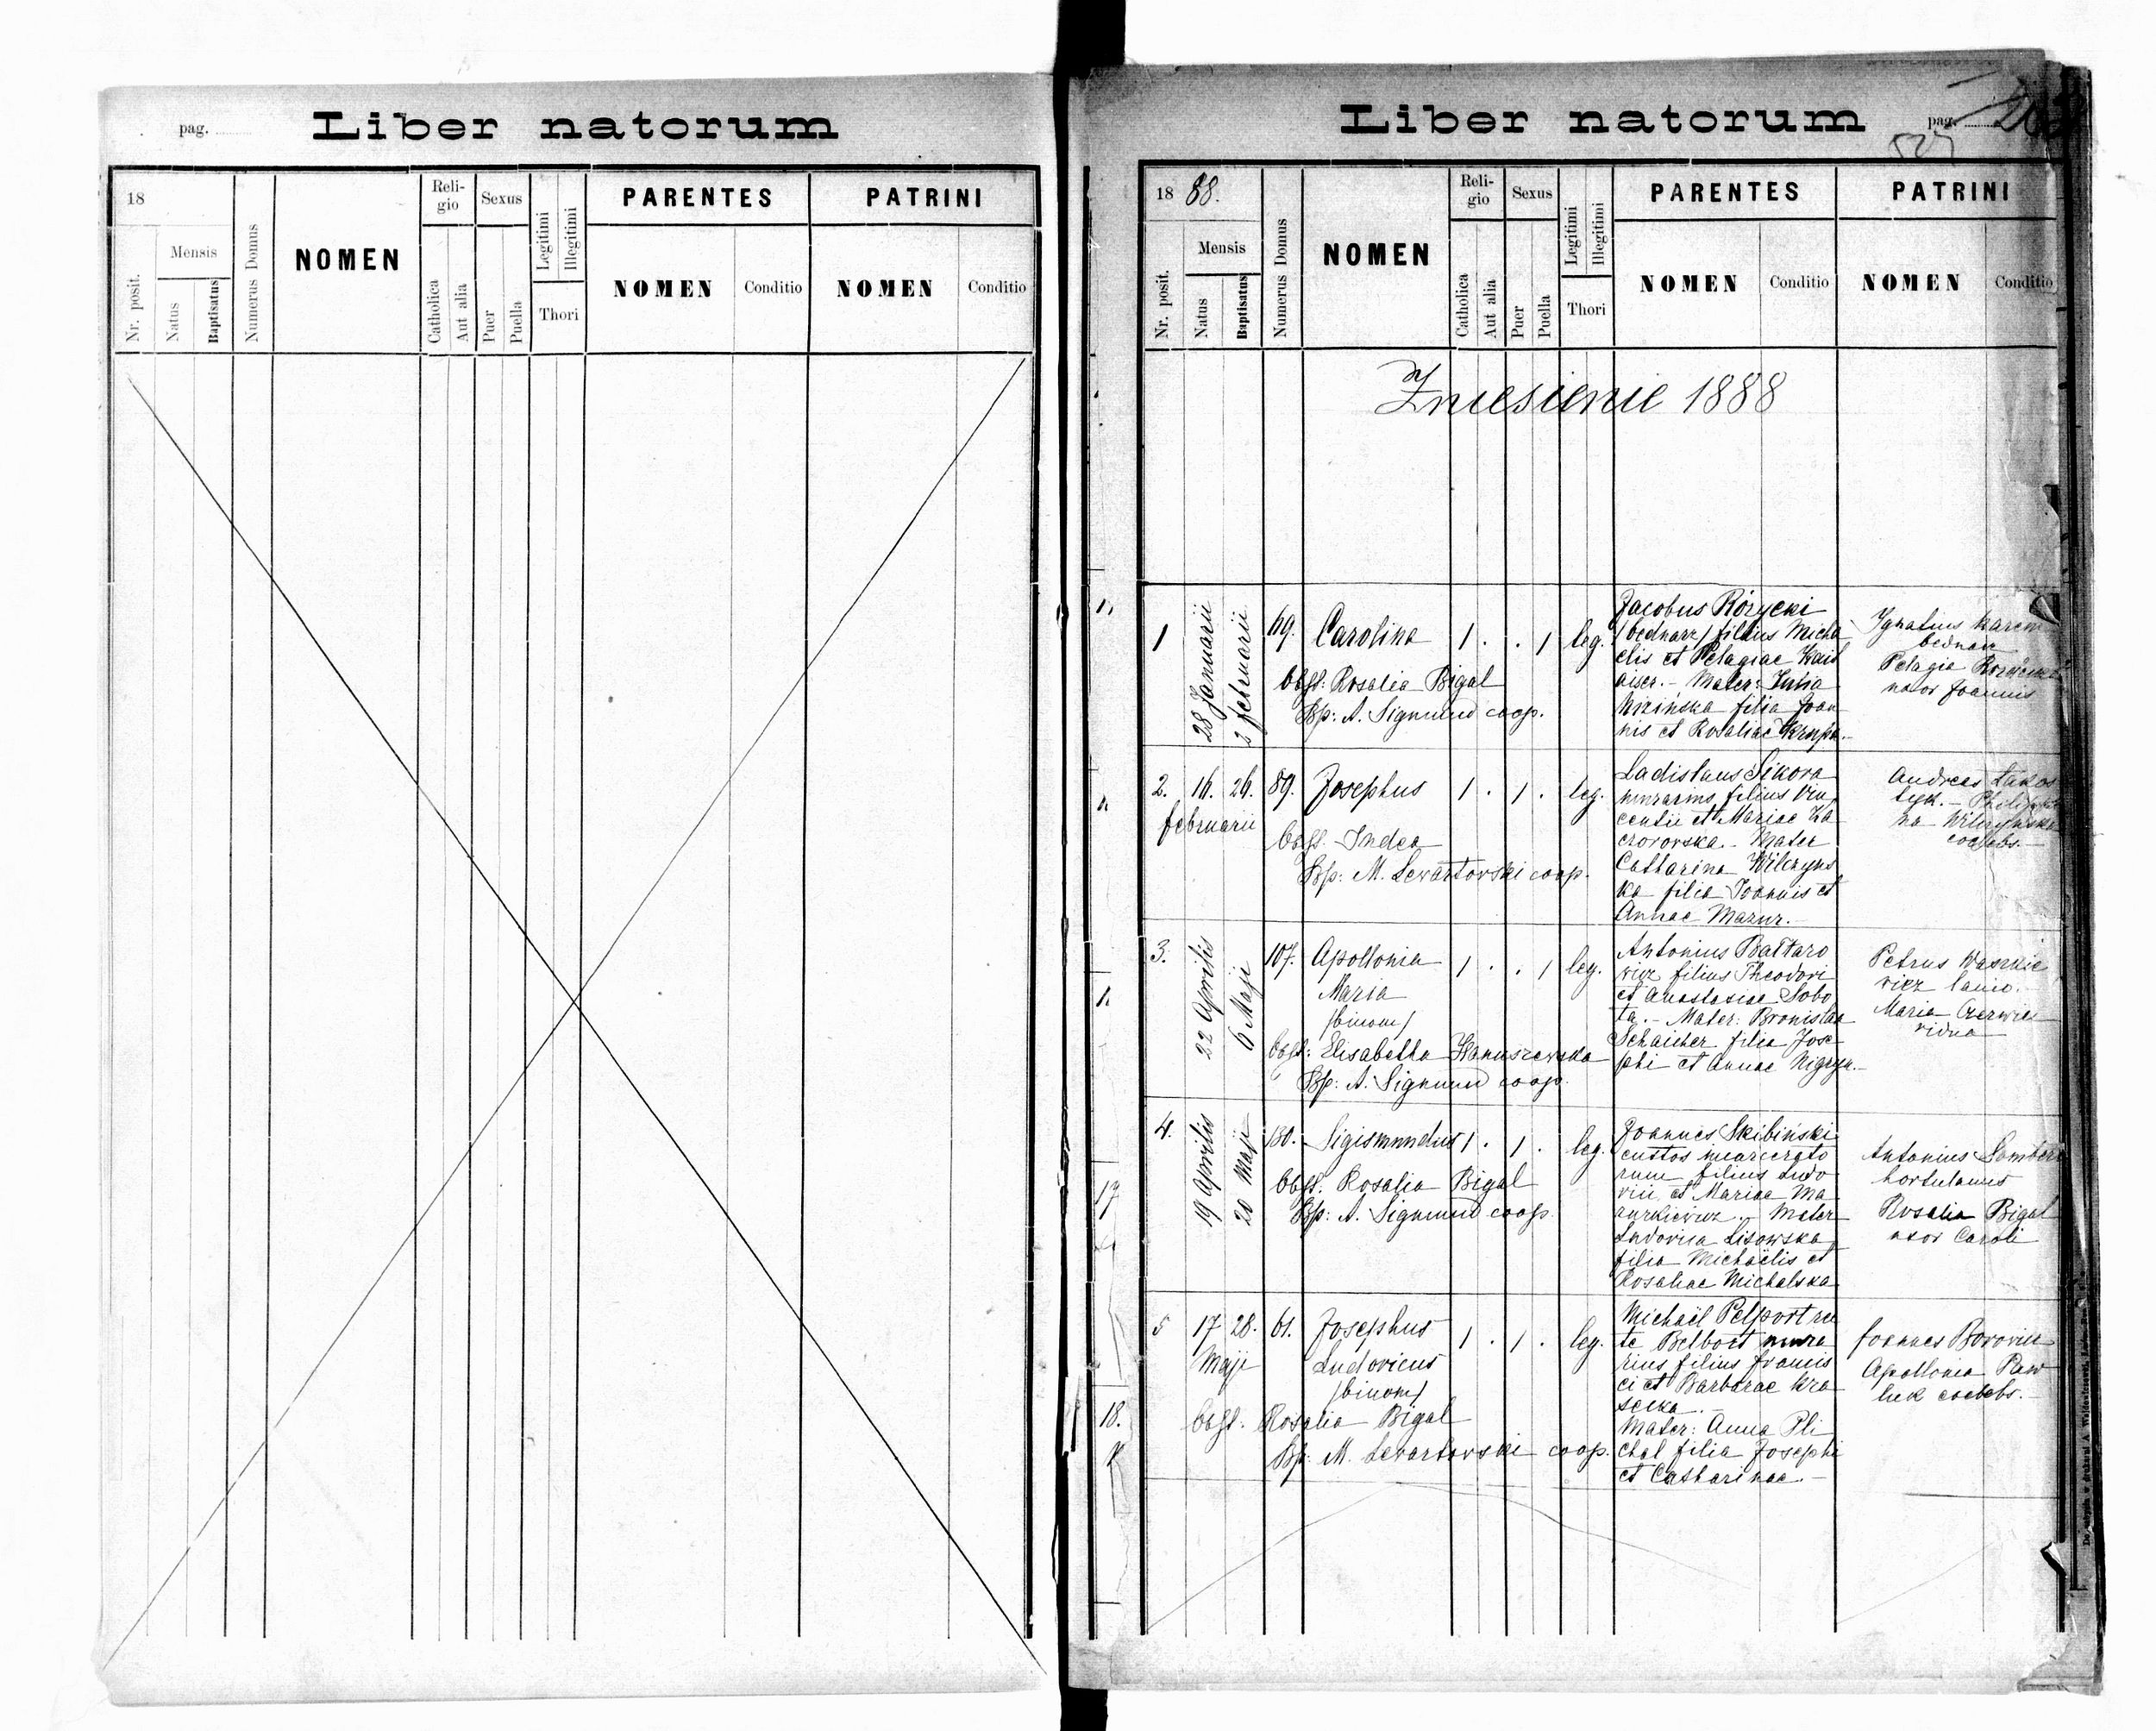 pag.
Liber natorum
18
Mensis
Nr. posit.
Natus
Baptisatus
Numerus Domus
NOMEN
Reli-
gio
Catholica
Aut alia
Sexus
Puer
Puella
Legitimi
Illegitimi
Thori
PARENTES
NOMEN
Conditio
PATRINI
NOMEN
Conditio
Liber natorum
pag.
527
18 88.
Mensis
Nr. posit.
Natus
Baptisatus
Numerus Domus
NOMEN
Reli-
gio
Catholica
Aut alia
Sexus
Puer
Puella
Legitimi
Illegitimi
Thori
PARENTES
NOMEN
Conditio
PATRINI
NOMEN
Conditio
Zniesienie 1888
1
28 Januarii
2 februarii
69.
Carolina
1 . . 1 leg.
obst: Rosalia Bigal
Bp: A. Sigmund coop.
Jacobus Rózycki
/bednarz/ filius Micha
elis et Pelagiae
aiser. - Mater: Julia
Nizińska filia Joan
nis et Rosaliae Krupa.-
Ignatius
bednarz
Pelagia
uxor Joannis
2. 16. 26. 89.
februarii
Josephus
1 . 1 . leg.
obst. Judea
Bp: M. Levartovski coop.
Ladislaus Sikora
murarius filius Vin
centii et Mariae Za
czorovska. - Mater
Catharina Wilczyńs
ka filia Joannis et
Annae Mazur.-
Andreas
- Philippi
na Wilczyńska
coelebs.-
3.
22 Aprilis
6 Maji
107.
Apollonia
Maria
/binom/
1 . . 1 leg.
obst: Elisabetha Hanuszewska
Bp: A. Sigmund coop.
Antonius Baltaro
vicz filius Theodori
et Anastasiae Sobo
ta. - Mater: Bronislaa
Schaicher filia Jose
phi et Annae Nigryn.-
Petrus Waszkie
vicz lanio.-
Maria
vidua
4.
19 Aprilis
20 Maji
130.
Sigismundus
1 . 1 . leg.
obst: Rosalia Bigal
Bp: A. Sigmund coop.
Joannes Skibiński
custos incarcerato
rum filius Ludo
vici et Mariae Ma
zurkievicz - Mater
Ludovica Lisowska
filia Michaëlis et
Rosaliae Michalska
Antonius
hortulanus
Rosalia Bigal
uxor Caroli
5 17 28. 61.
Maji
Josephus
Ludovicus
/binom/
1 . 1 . leg.
obst. Rosalia Bigal
Bp: M. Levartovski coop.
Michaël Pelport rec
te Belbort mura
rius filius Francis
ci et Barbarae Kra
sicka.-
Mater: Anna Pli
chal filia Josephi
et Catharinae.-
Joannes
Apollonia Paw
luk coelebs.-
17
18.